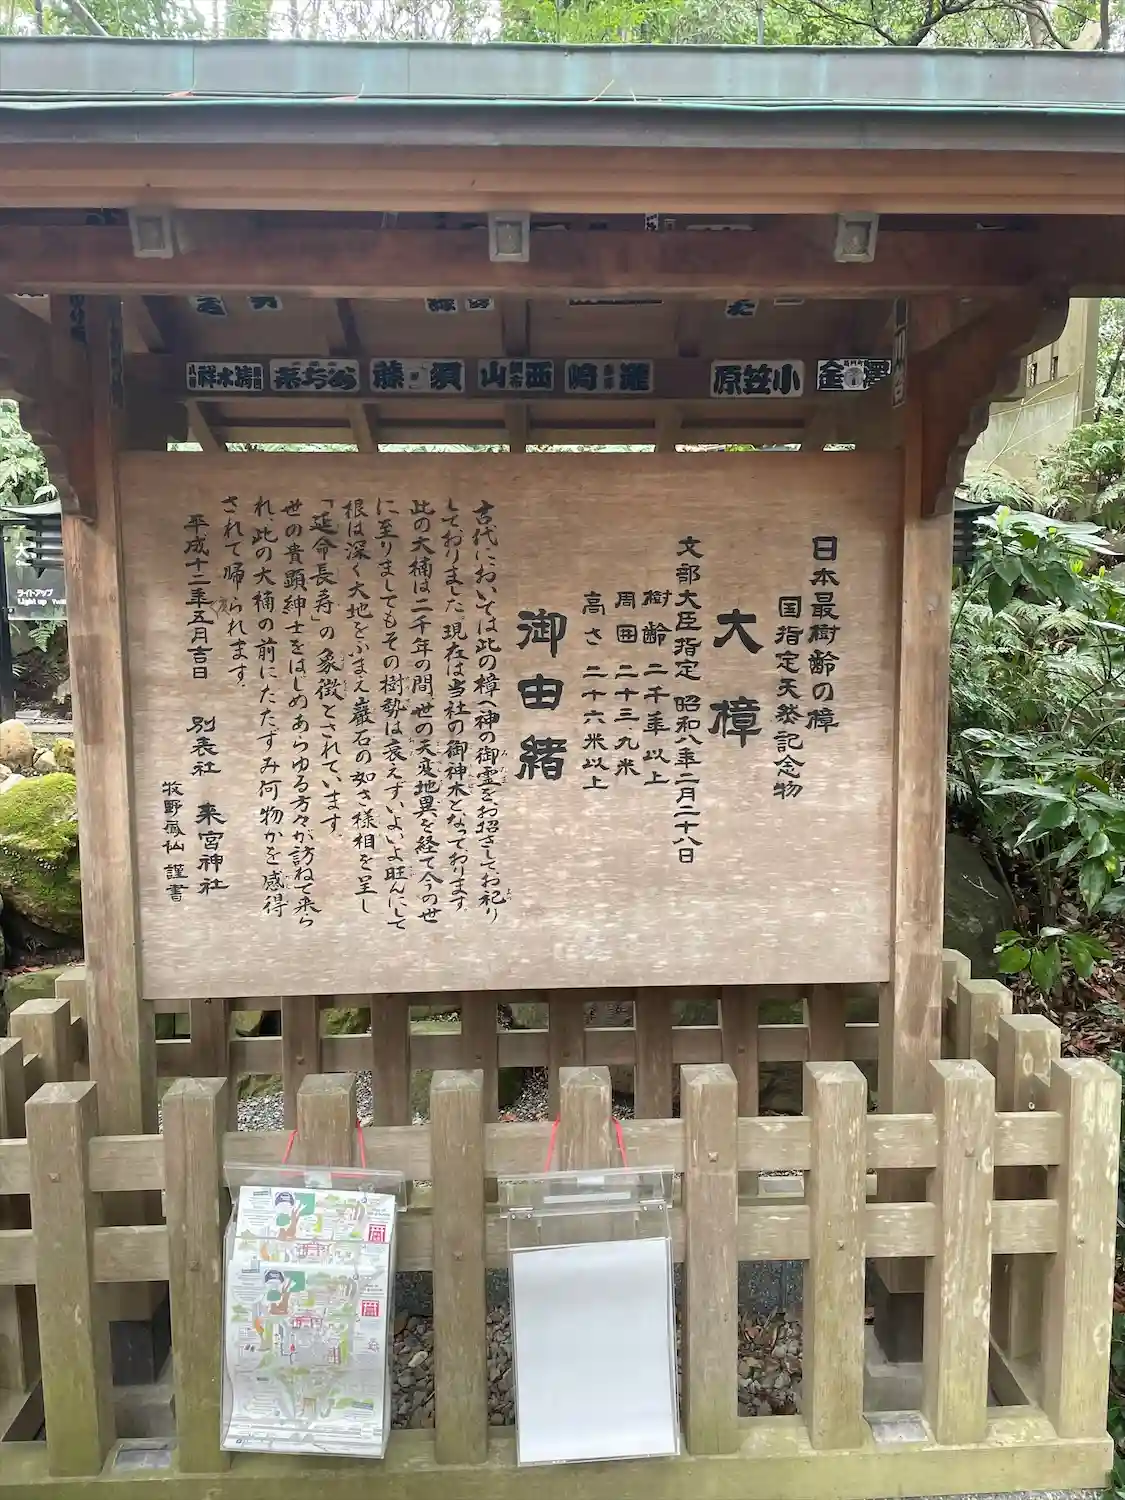 日本最樹齢の樟
国指定天然記念物
大樟
文部大臣指定 昭和八年二月二十八日
樹齢 二千年以上
周囲 二十三、九米
高さ 二十六米以上
御由緒
古代においては此の樟へ神の御霊をお招きしてお祀り
しておりました。現在は当社の御神木となっております。
此の大楠は二千年の間、世の天変地異を経て今の世
に至りましてもその樹勢は衰えず、いよいよ旺んにして
根は深く大地をふまえ巌石の如き様相を呈し
「延命長寿」の象徴とされています。
世の貴顕紳士をはじめあらゆる方々が訪ねて来ら
れ、此の大楠の前にたたずみ何物かを感得
されて帰られます。
平成十二年五月吉日 別表社 来宮神社
牧野 仙 謹書
小笠原
灘崎
西山
須藤
清水祥
ライトアップ
Light up